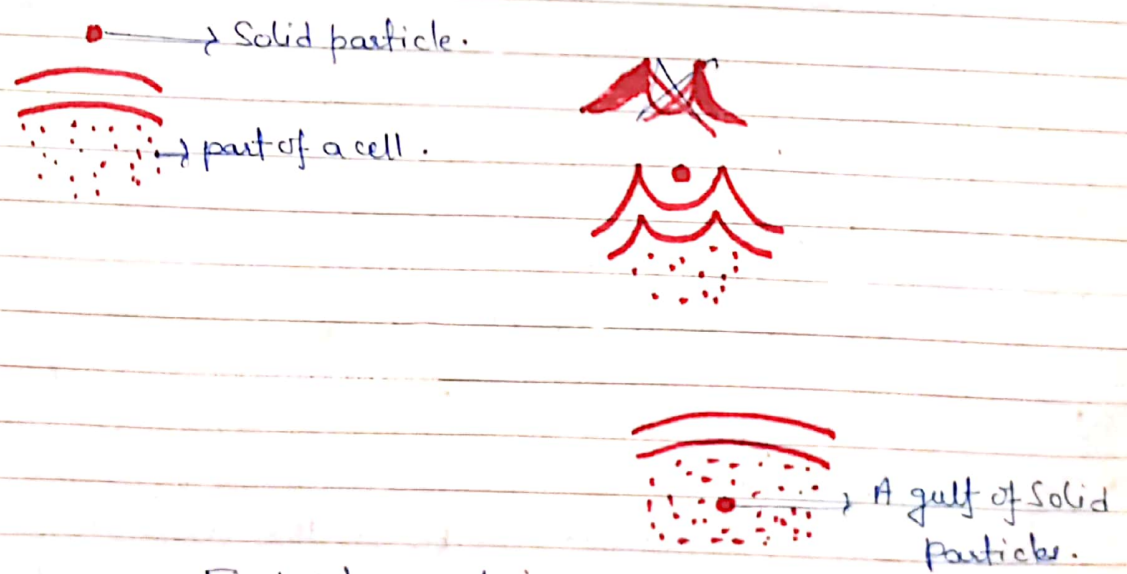 Solid particle.
part of a cell.
A gulf of Solid
particles.